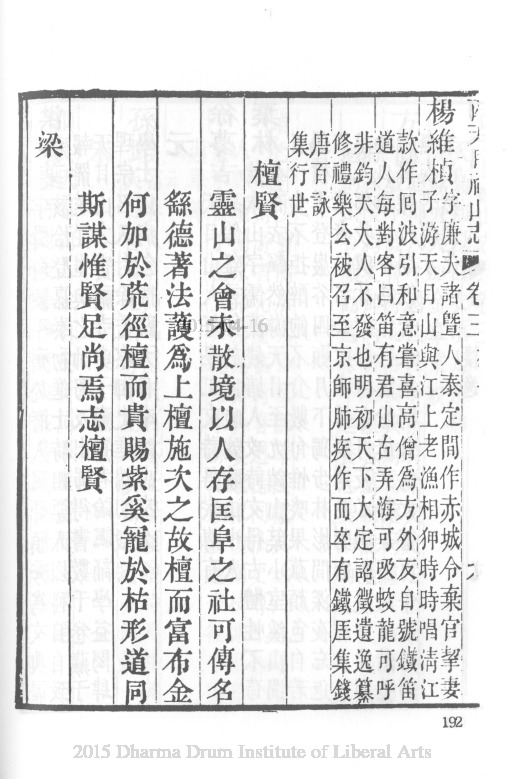 楊維楨字廉夫諸曁人泰定間作赤城令棄官挈妻
子游天目山與江上老漁相狎時時唱淸江
款作囘波引和意嘗喜高僧爲方外友自號鐵笛
道人每對客曰笛有君山古弄海可吸蛟龍可呼
非鈞天大人不發也明初天下大定詔徵遺逸纂
修禮樂公被召至京師肺疾作而卒有鐵厓集錢
唐百詠
集行世
檀賢
靈山之會未散境以人存匡阜之社可傳名
繇德著法護爲上檀施次之故檀而富布金
何加於荒徑檀而貴賜紫奚寵於枯形道同
斯謀惟賢足尚焉志檀賢
梁
192
2015 Dharma Drum Institute of Liberal Arts